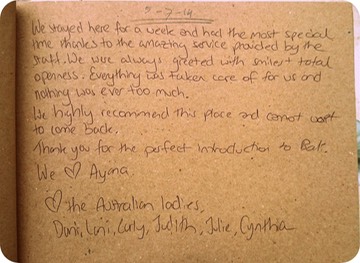 5-7-14
We stayed here for a week and had the most special
time thanks to the amazing service provided by the
staff. We were always greeted with smiles + total
openness. Everything was taken care of for us and
nothing was ever too much.
We highly recommend this place and cannot wait
to come back.
Thank you for the perfect introduction to Bali.
We ♡ Ayana
♡ the Australian ladies,
Dani, Loni, Carly, Judith, Julie, Cynthia